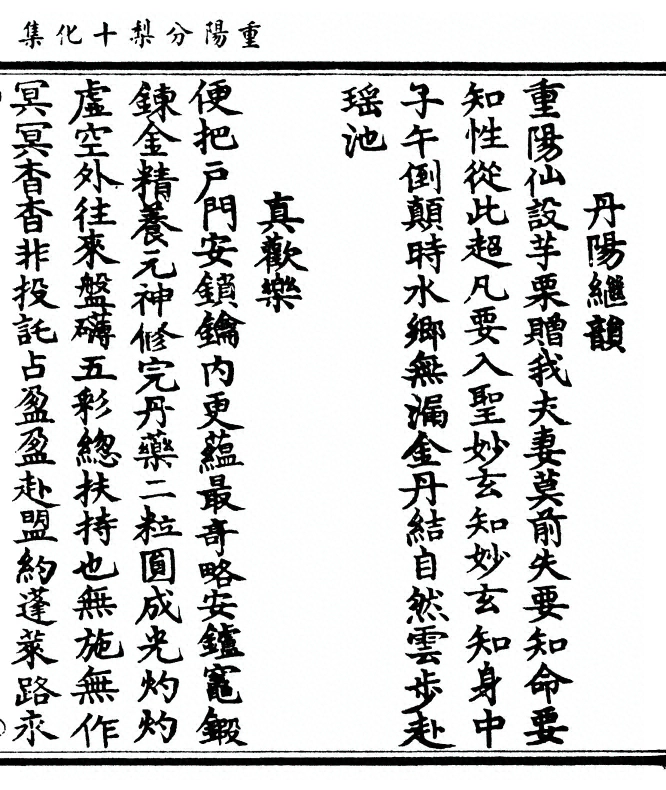 重陽分梨十化集
丹陽繼韻
重陽仙設芋栗贈我夫妻莫前失要知命要
知性從此超凡要入聖妙玄知妙玄知身中
子午倒顛時水鄉無漏金丹結自然雲步赴
瑶池
真歡樂
便把戸門安鎖鑰内更藴最竒略安鑪竈鍜
鍊金精養元神修完丹藥二粒圓成光灼灼
虛空外往來盤礴五彩緫扶持也無施無作
冥冥杳杳非投託占盈盈赴盟約蓬萊路永